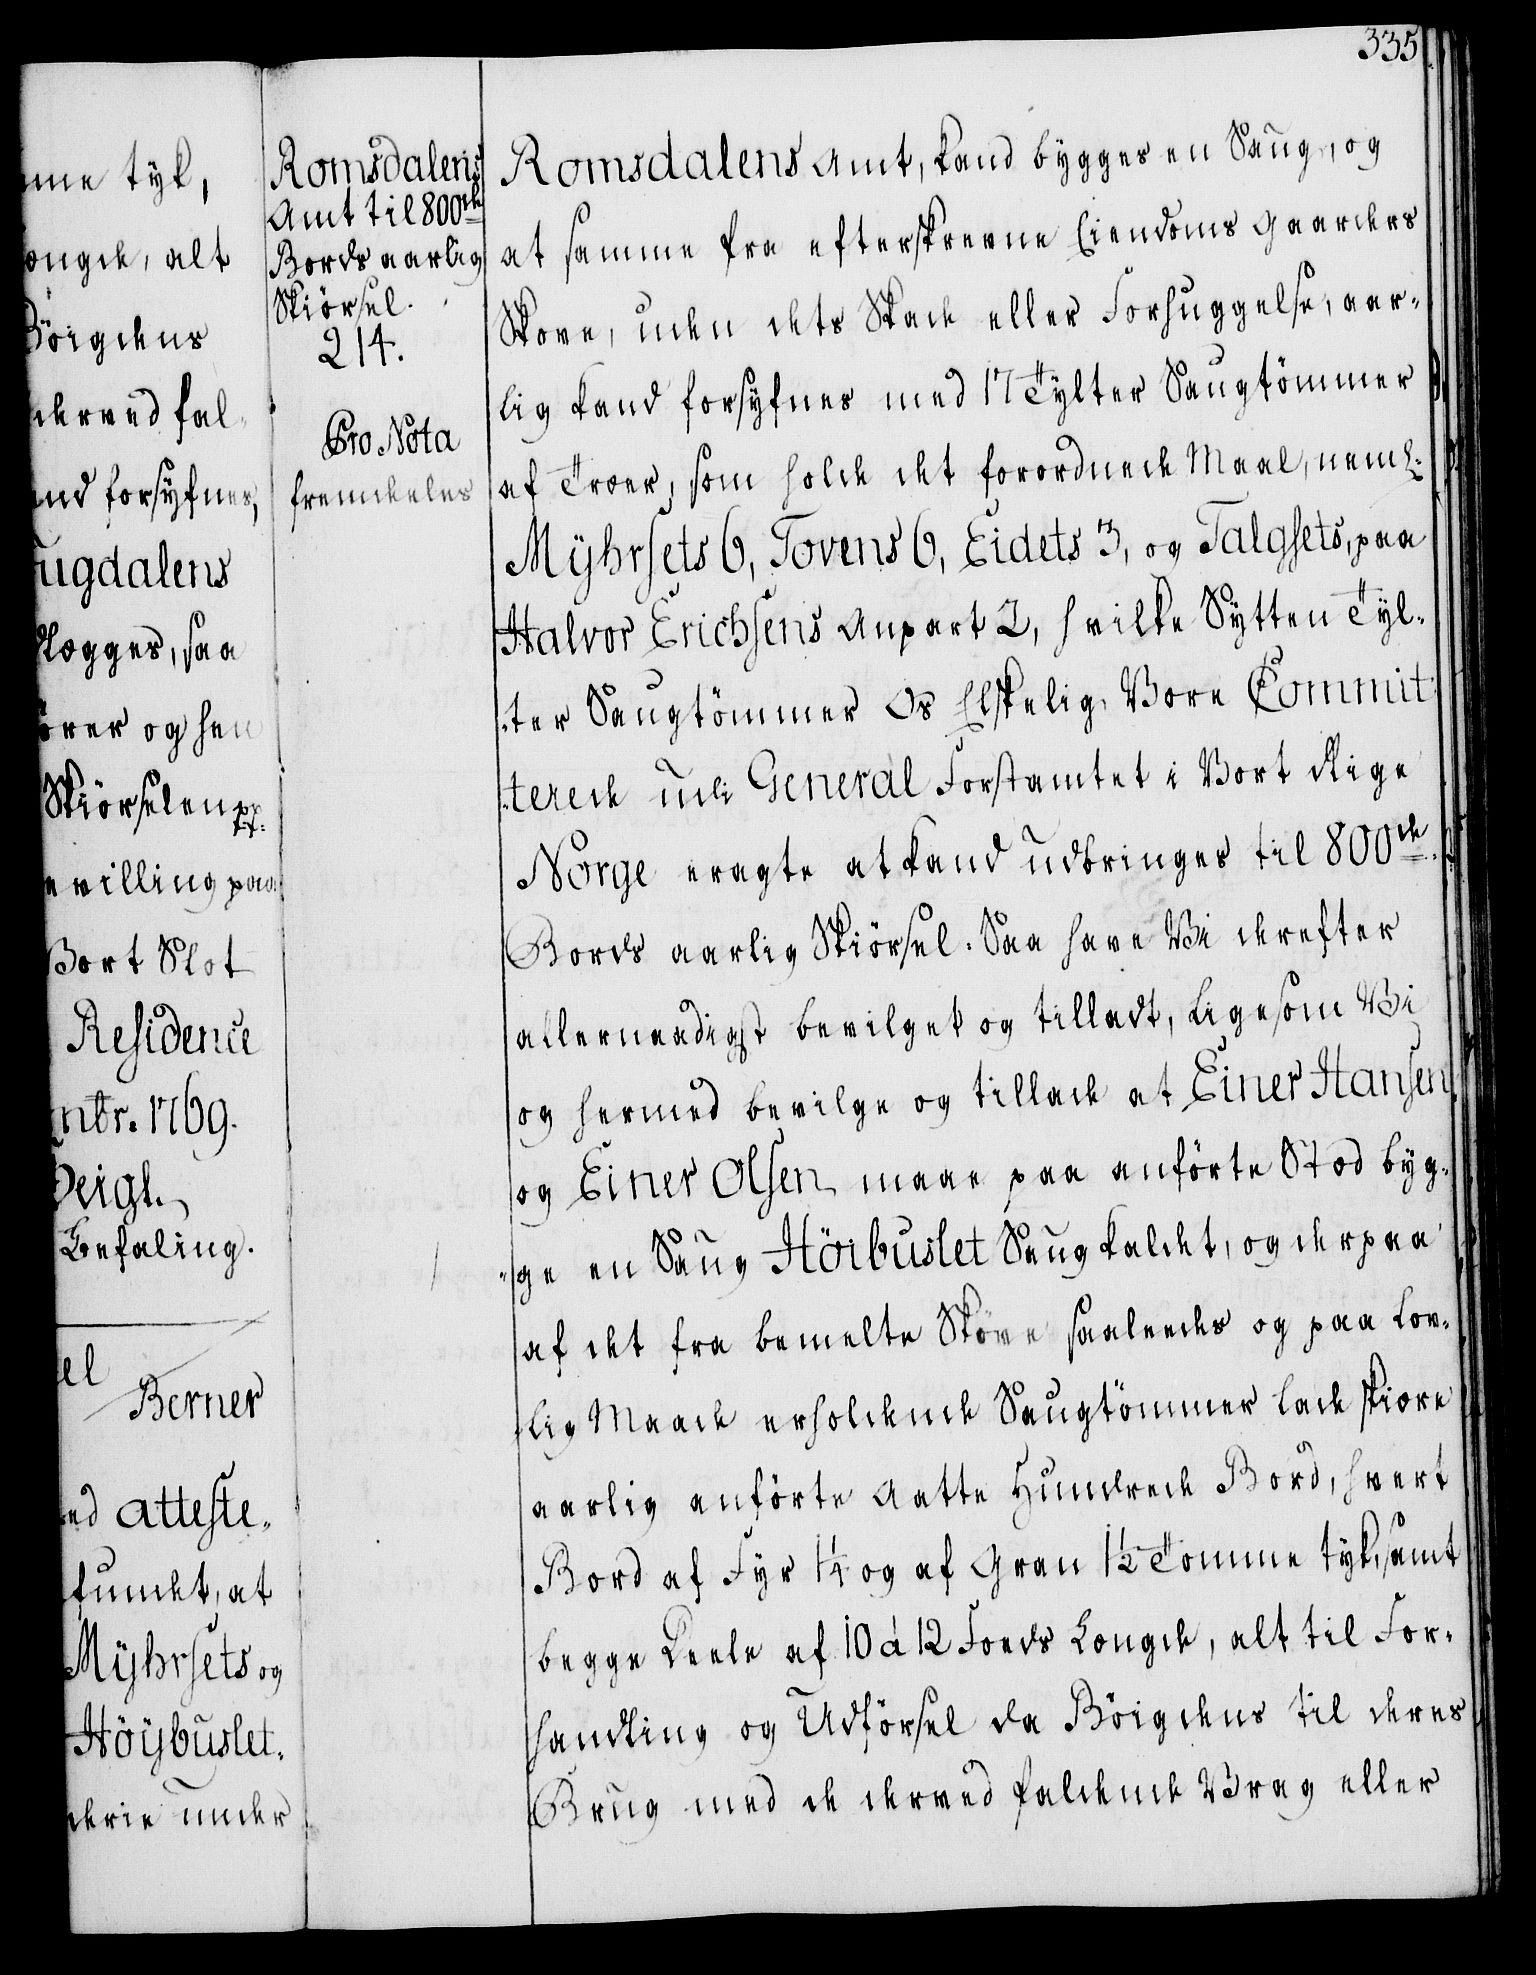 335
me tyk,
ængde, alt
Böigdens
derved fal-
nd forsyfnes,
ugdalens
lægges, saa
örer og hen
Skiörselen pp.
evilling paa
Vort Slot
Residence
mbr. 1769.
Befaling.
Berner
ed atteste-
fundet, at
Myhrsets og
Höybuslet-
derie under
Romsdalens
Amt til 800de
Bords aarlig
Skiörsel.
214.
Pro Nota
fremdeles
Romsdalens Amt, kand bygges en Saug, og
at samme fra efterskrevne Eiendoms Gaarders
Skove, uden dets Skade eller Forhuggelse, aar-
lig kand forsyfnes med 17 Tylter Saugtömmer
af Træer, som holde det forordnede Maal, neml:
Myhrsets 6, Tovens 6, Eidets 3, og Talgsets, paa
Halvor Erichsens Anpart 2, hvilke Sytten Tyl-
ter Saugtömmer Os Elskelig, Vore Commit-
terede udi General Forstamtet i Vort Rige
Norge eragte at kand udbringes til 800de
Bords aarlig Skiörsel. Saa have Vi derefter
allernaadigst bevilget og tilladt, ligesom Vi
og hermed bevilge og tillade at Einer Hansen
og Einer Olsen maae paa anförte Stæd byg-
ge en Saug Höibuslet Saug kaldet, og derpaa
af det fra bemelte Skove saaledes og paa Lov-
lig Maade erholdende Saugtömmer lade skiære
aarlig anförte Aatte Hundrede Bord, hvert
Bord af Fyr 1¼ og af Gran 1½ Tomme tyk, samt
begge Deele af 10 á 12 Foeds Længde, alt til For-
handling og Udförsel da Böigdens til deres
Brug med de derved faldende Vrag eller